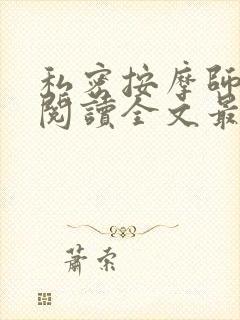 私密按摩師
閱讀全文最
蕭索